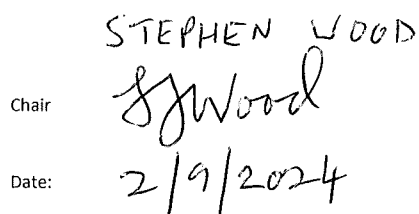 STEPHEN WOOD
Chair SJWood
Date: 2/9/2024